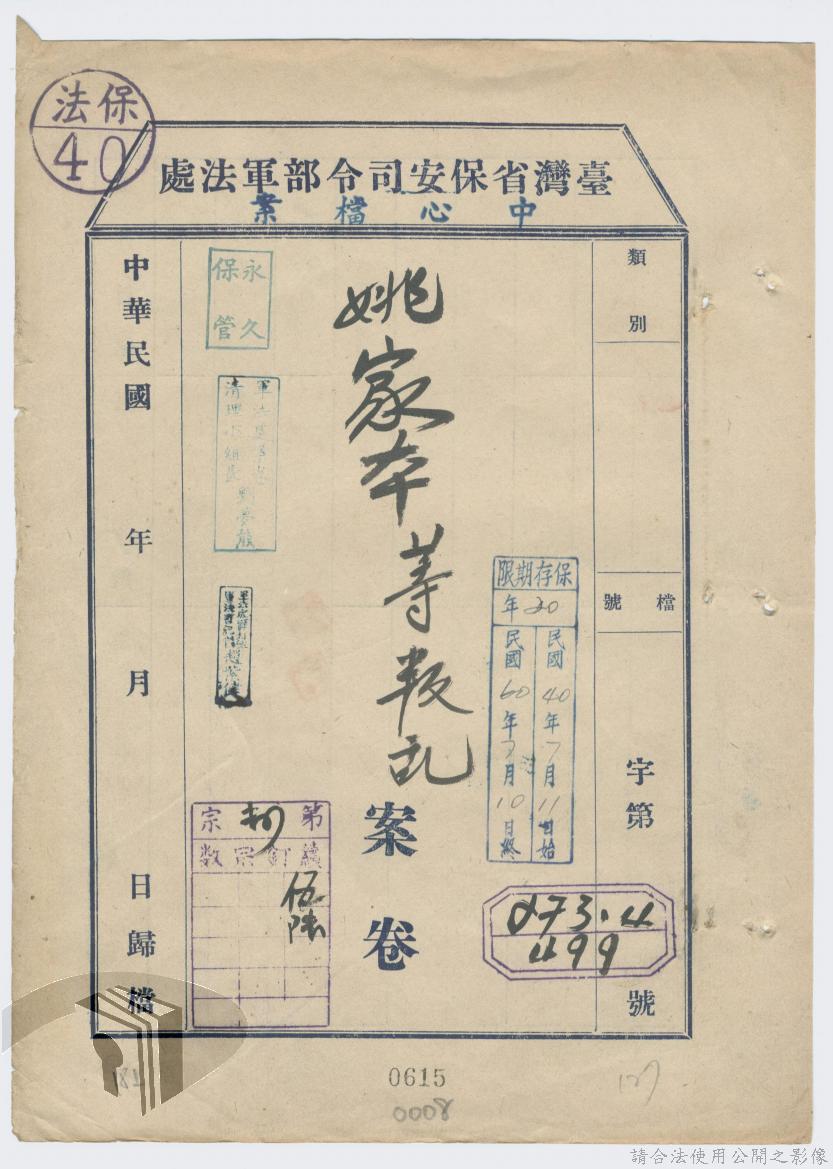 保法
40
臺灣省保安司令部軍法處
中心檔案
類別
檔號
字第
號
保存期限
20年
民國40年7月11日始
民國60年7月10日終
273.4
499
姚家本等叛乱
案卷
永久
保管
第
宗
續訂宗数
伍
陸
中華民國
年
月
日歸檔
0615
0008
請合法使用公開之影像